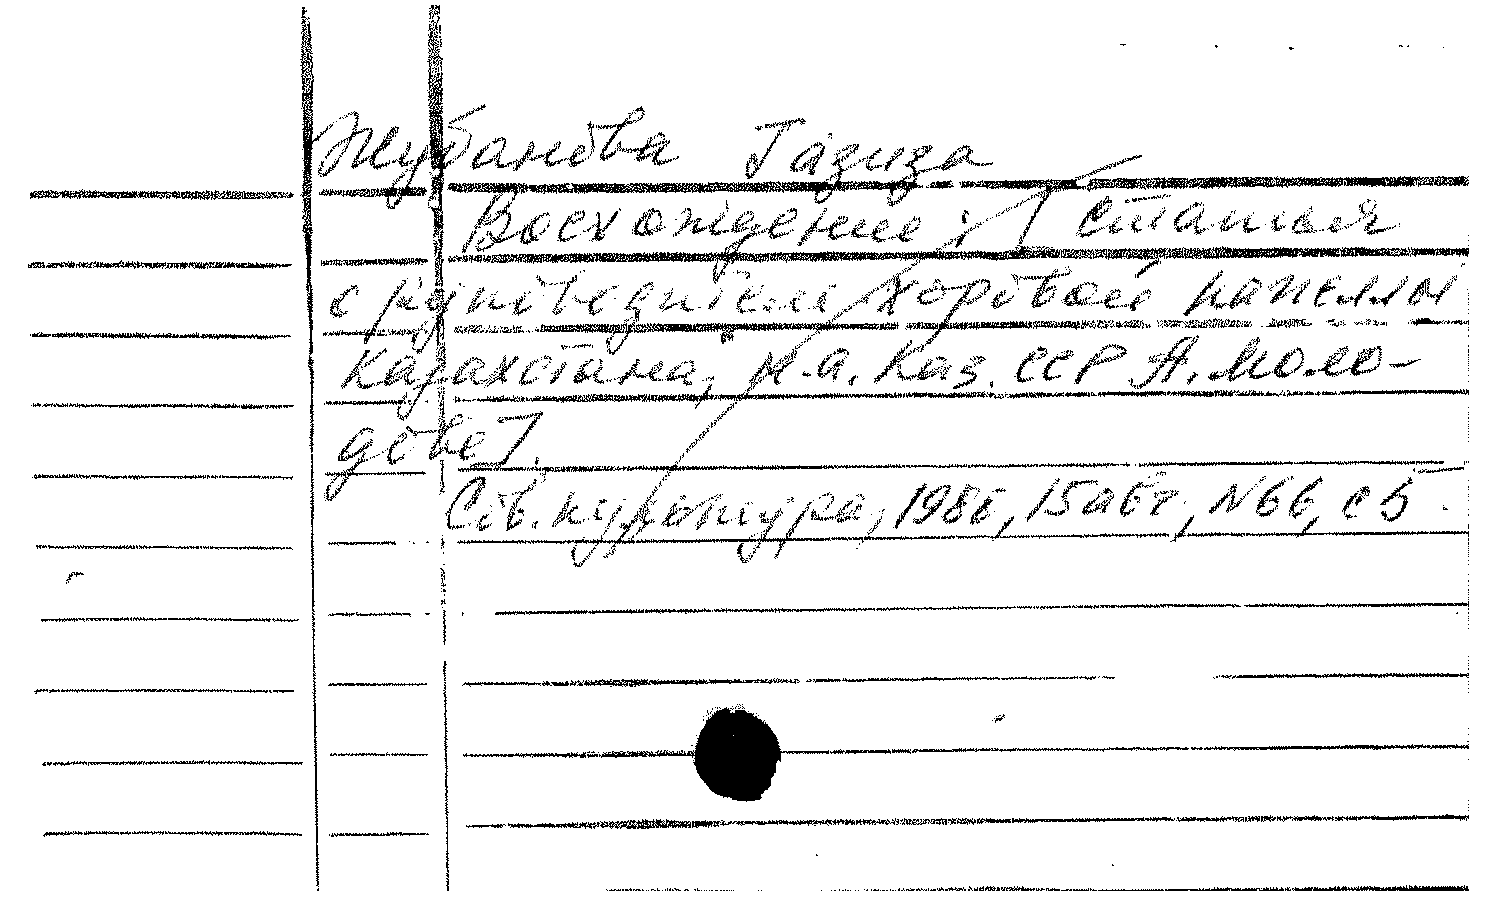 Жубанова Газиза
Восхождение: [статья
с руководителе хоровой капеллы
Казахстана, н.а. Каз. ССР А. Моло-
дове].
Сов. культура, 1986, 15 авг, N66, с 5.